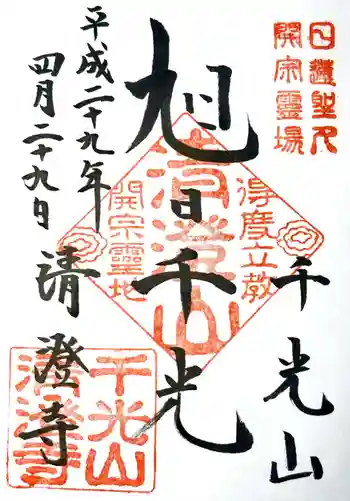 日蓮聖人
開宗霊場
千光山
旭日千光
清澄山
得度立教
開宗霊地
平成二十九年
四月二十九日
清澄寺
千光山
清澄寺